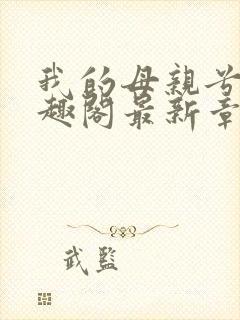 我的母親
趣閣最新章
武監